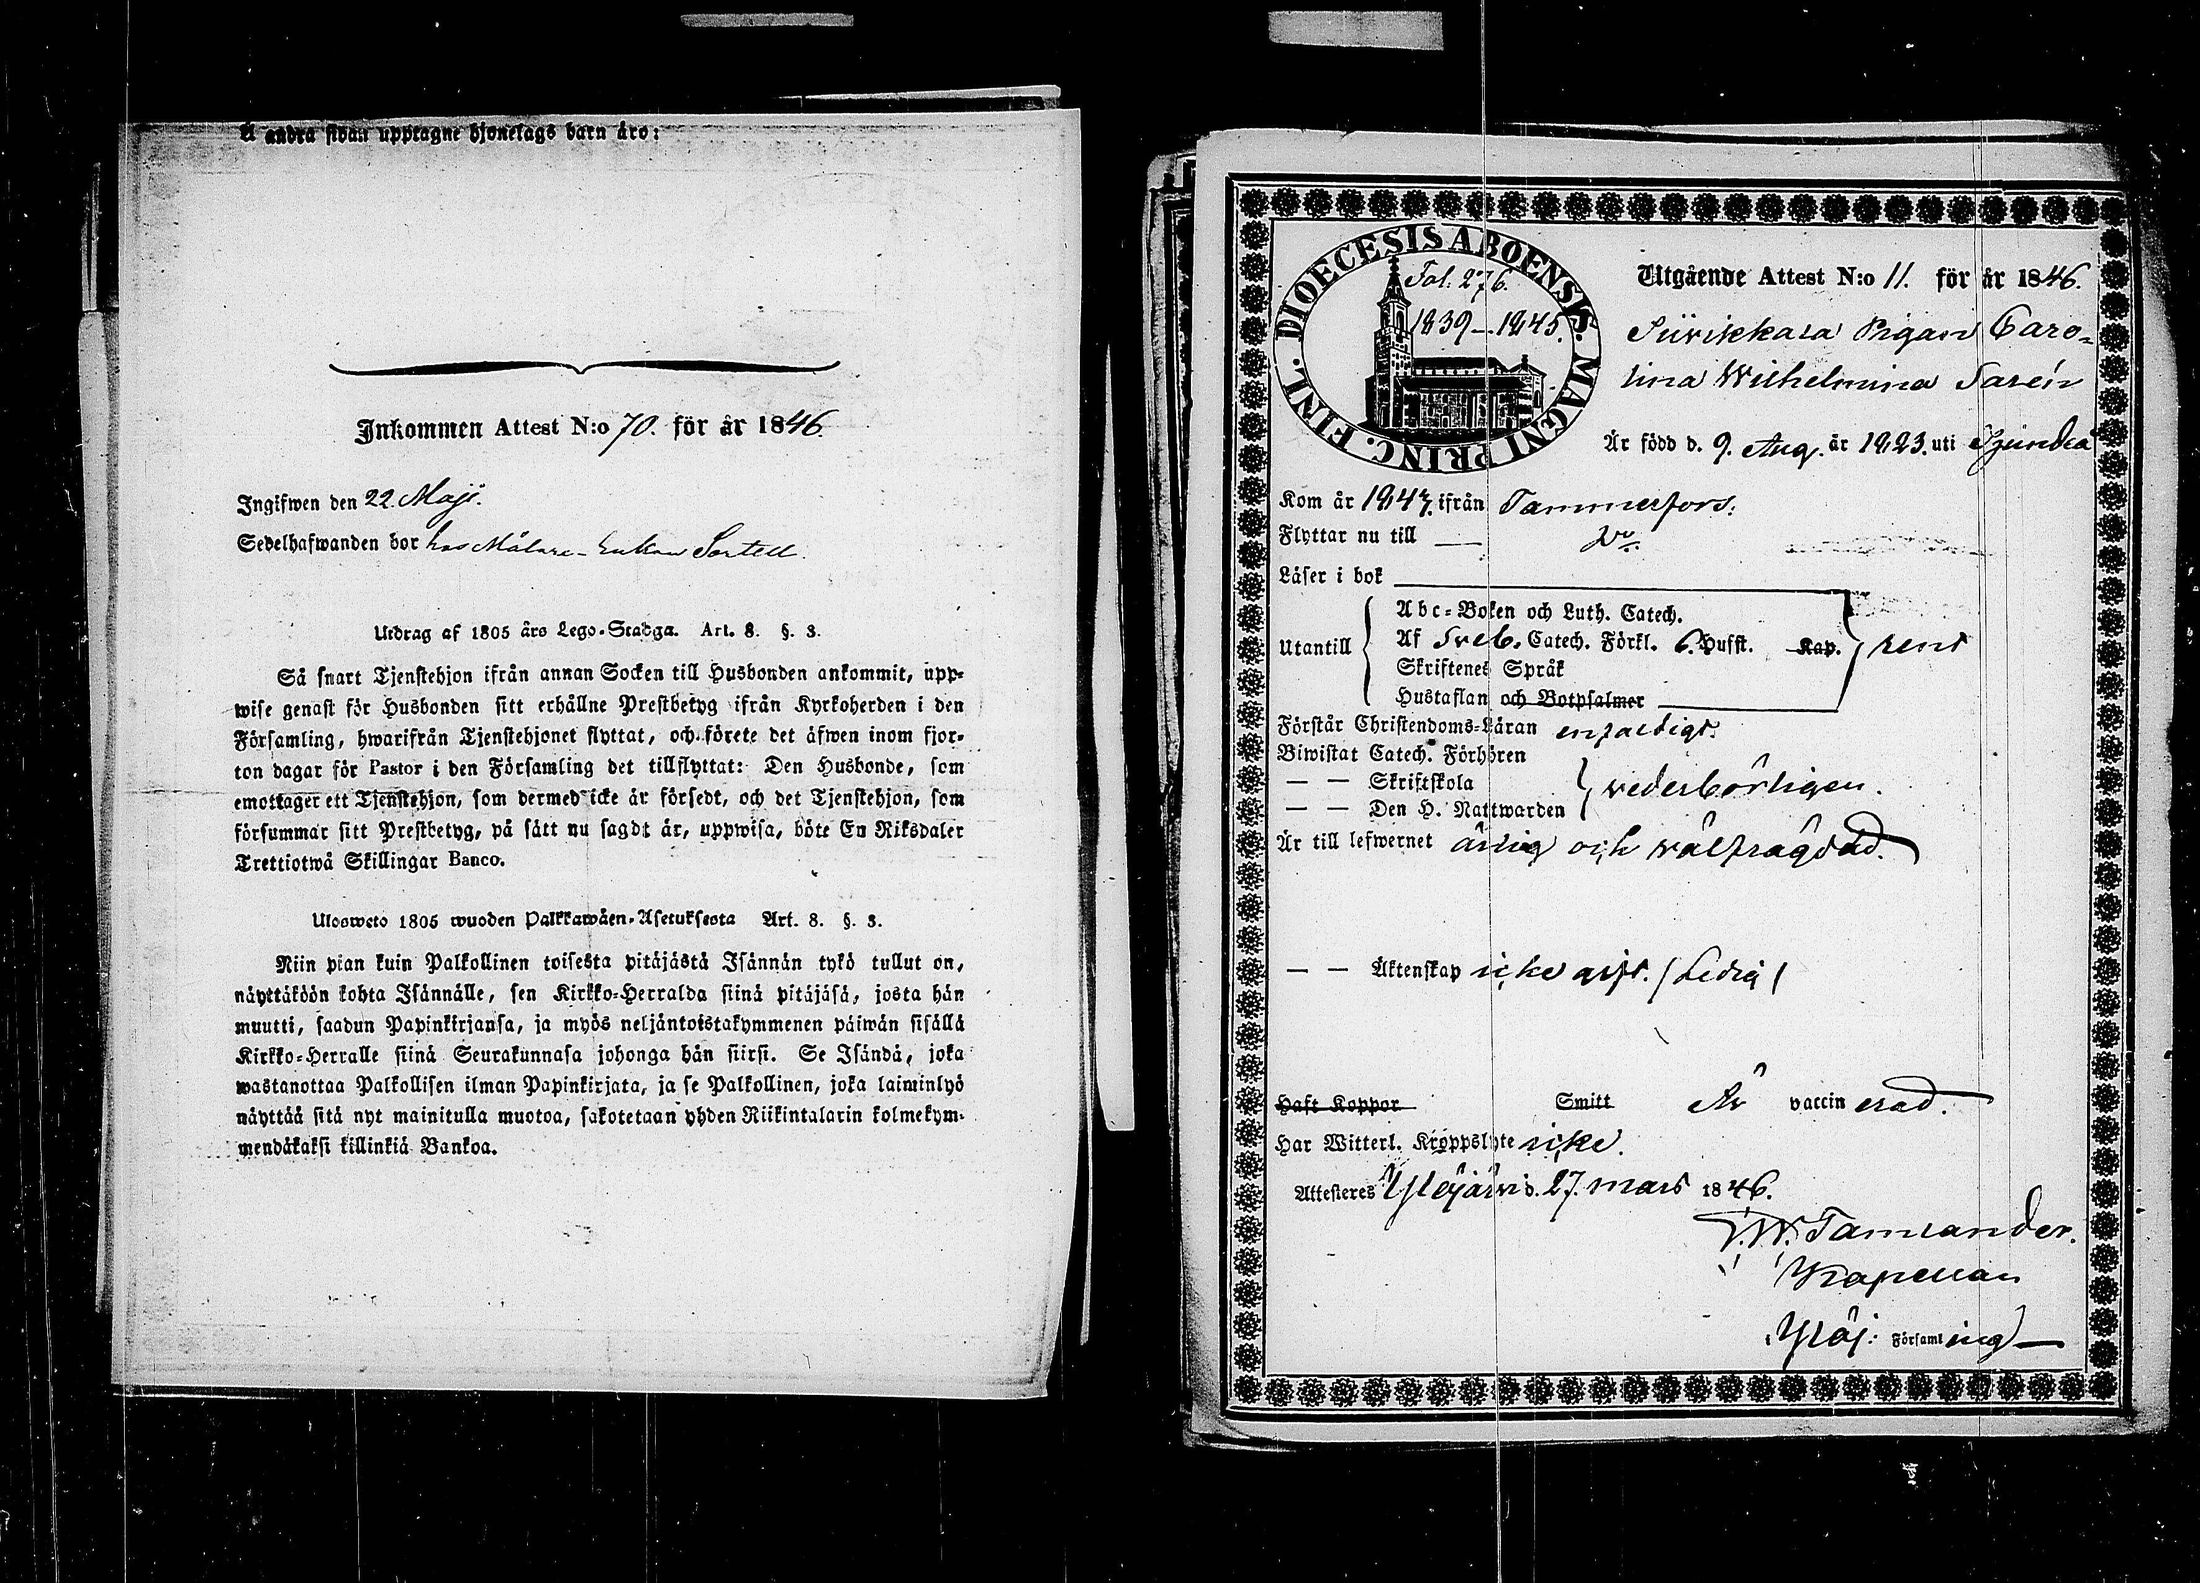 å andra sidan upptagne hjonelags barn äro:
Inkommen Attest N:o 70. för år 1846.
Ingifwen den 22. Maji.
Sedelhafwanden bor hos Målare-Enkan
Utdrag af 1805 års Lego-Stadga. Art. 8. §. 3.
Så snart Tjenstehjon ifrån annan Socken till Husbonden ankommit, upp-
wise genast för Husbonden sitt erhållne Prestbetyg ifrån Kyrkoherden i den
Församling, hwarifrån Tjenstehjonet flyttat, och förete det äfwen inom fjor-
ton dagar för Pastor i den Församling det tillflyttat: Den Husbonde, som
emottager ett Tjenstehjon, som dermed icke är försedt, och det Tjenstehjon, som
försummar sitt Prestbetyg, på sätt nu sagdt är, uppwisa, böte En Riksdaler
Trettiotwå Skillingar Banco.
Ulosweto 1805 wuoden Palkkawäen-Asetuksesta Art. 8. §. 3.
Niin pian kuin Palkollinen toisesta pitäjästä Isännän tykö tullut on,
näyttäköön kohta Isännälle, sen Kirkko-Herralda siinä pitäjäsä, josta hän
muutti, saadun Papinkirjansa, ja myös neljäntoistakymmenen päiwän sisällä
Kirkko-Herralle siinä Seurakunnasa johonga hän siirsi. Se Isändä, joka
wastanottaa Palkollisen ilman Papinkirjata, ja se Palkollinen, joka laiminlyö
näyttää sitä nyt mainitulla muotoa, sakotetaan yhden Riikintalarin kolmekym-
mendäkaksi killinkiä Bankoa.
DIOECESIS ABOENSIS. MAGNI PRINC. FINL.
Fol. 276.
1839–1845.
Utgående Attest N:o 11. för år 1846.
Siivikkala Pigan Caro-
lina Wilhelmina Sarén
Är född d. 9. Aug. år 1823. uti Sjundeå
Kom år 1843. ifrån Tammerfors.
Flyttar nu till —
Läser i bok
Utantill
Abc-Boken och Luth. Catech.
Af Sveb. Catech. Förkl. 6. Hufst. Kap.
Skriftenes Språk
Hustaflan och Botpsalmer
rent
Förstår Christendoms-Läran enfaldigt.
Biwistat Catech. Förhören
— — Skriftskola
— — Den H. Nattwarden
vederbörligen.
Är till lefwernet ärlig och välfrägdad.
— — Äktenskap icke gift. / Ledig /
Haft Koppor Smitt Är vaccinerad.
Har Witterl. Kroppslyte icke.
Attesteres Ylöjärvi d. 27. mars 1846.
Tamlander.
Kapellan
i Ylöj: Församling